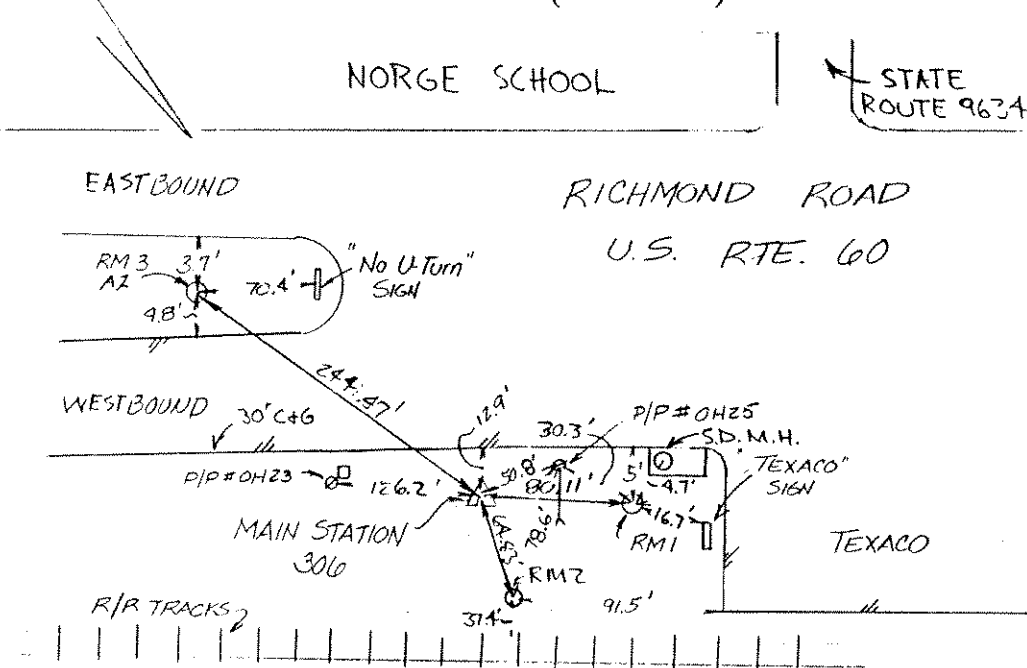 NORGE SCHOOL
STATE
ROUTE 9634
EASTBOUND
RICHMOND ROAD
U.S. RTE. 60
RM 3
AZ
3.7'
70.4'
"No U-Turn"
SIGN
4.8'
244.47'
WESTBOUND
30' C&G
12.9'
30.3'
P/P# OH25
S.D.M.H.
"TEXACO"
SIGN
P/P# OH23
126.2'
50.8'
80.11'
5'
4.7'
16.7'
MAIN STATION
306
64.83'
78.6'
RM1
TEXACO
RM2
37.4'
91.5'
R/R TRACKS